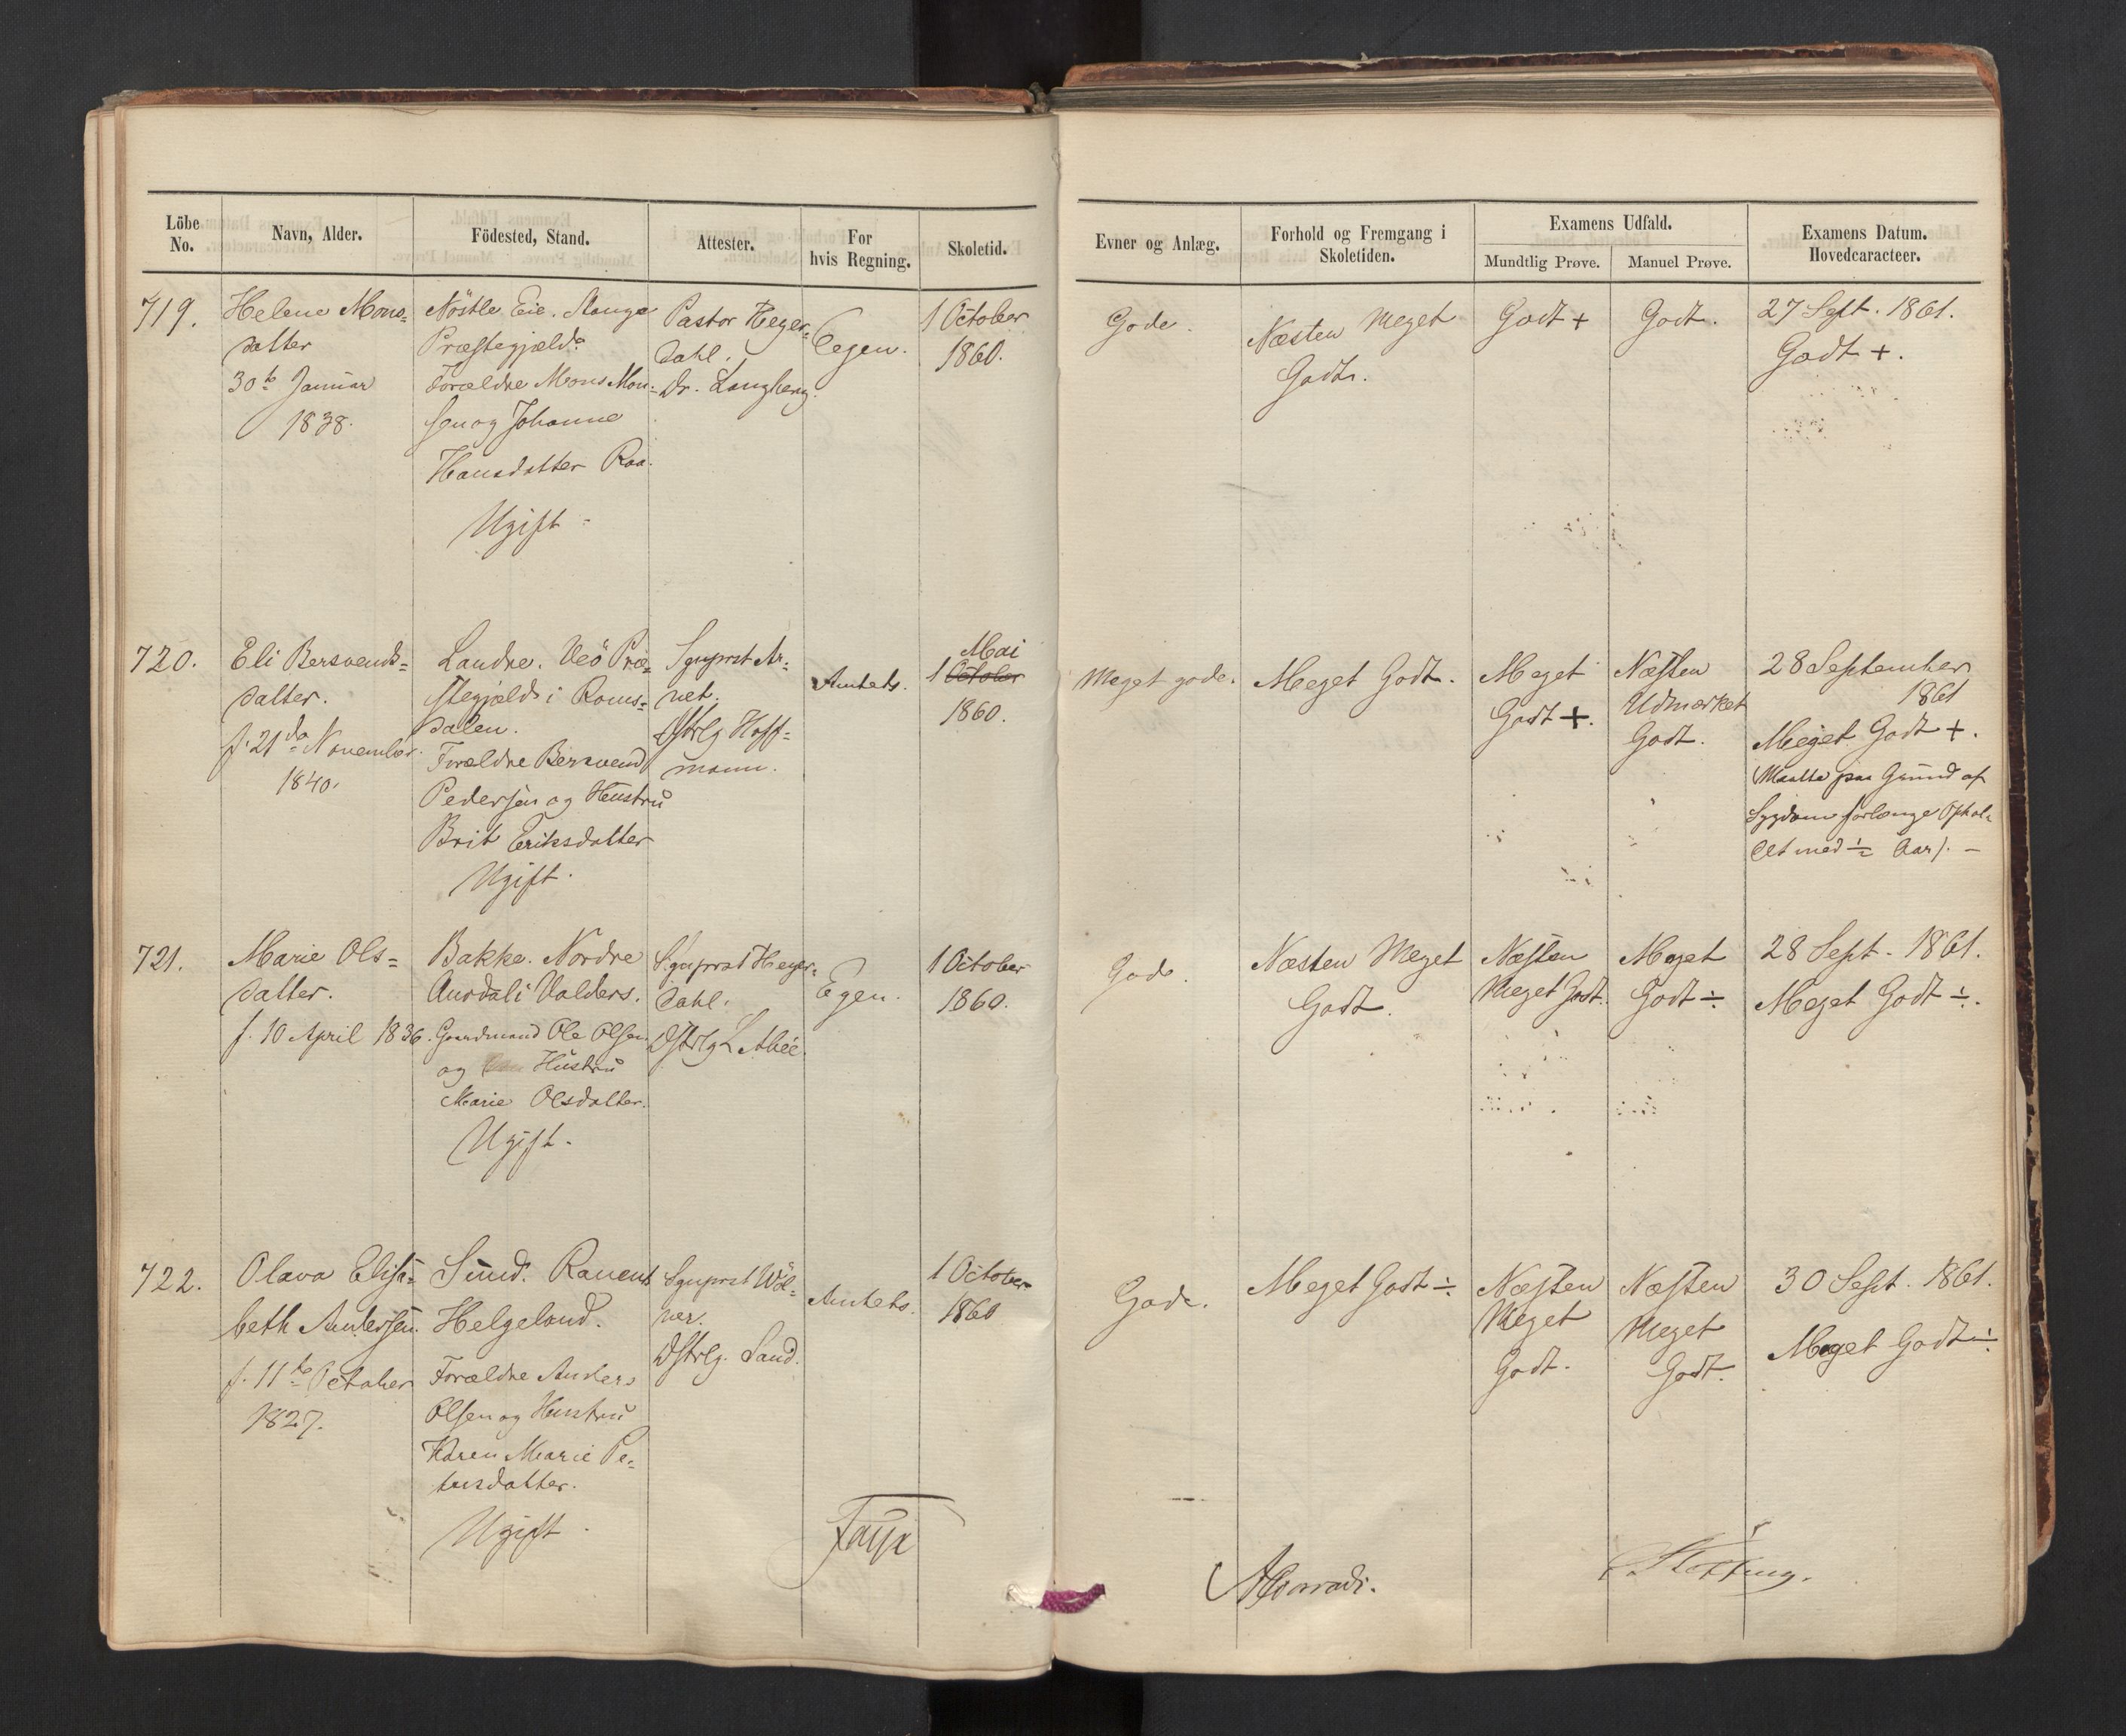 Löbe No.
Navn, Alder.
Födested, Stand.
Attester.
For hvis Regning.
Skoletid.
Evner og Anlæg.
Forhold og Fremgang i Skoletiden.
Examens Udfald.
Mundtlig Prøve.
Manuel Prøve.
Examens Datum. Hovedcaracteer.
719.
Helene Mons=
datter
30te Januar
1838.
Nöstle Eie. Stange
Præstegjæld.
Forældre Mons Mon=
sen og Johanne
Hansdatter Raa.
Ugift
Pastor Heyer=
dahl.
Dr. Langberg.
Egen.
1 October
1860.
Gode.
Næsten Meget
Godt.
Godt +
Godt.
27 Sept. 1861.
Godt +.
720.
Eli Bersvends=
datter.
f. 21da November
1840.
Landre. Veö Præ=
stegjæld i Roms=
dalen.
Forældre Bersvend
Pedersen og Hustru
Brit Eriksdatter
Ugift.
Sgnprst Ar=
net.
Dstrlg Hoff=
mann.
Amtets.
Mai
1 October
1860.
Meget gode.
Meget Godt.
Meget
Godt +.
Næsten
Udmærket
Godt.
28 September
1861
Meget Godt +.
(Maatte paa Grund af
Sygdom forlænge Ophol=
det med ½ Aar). –
721.
Marie Ols=
datter.
f. 10 April 1836.
Bakke. Nordre
Aurdal i Valders.
Gaardmand Ole Olsen
og Hustru
Marie Olsdatter.
Ugift.
Sgnprst Heyer=
dahl.
Dstrlg L Abée.
Egen.
1 October
1860.
Gode.
Næsten Meget
Godt.
Næsten
Meget Godt.
Meget
Godt ÷
28 Sept. 1861.
Meget Godt ÷.
722.
Olava Elisa=
beth Andersen.
f. 11te October
1827.
Sund. Ranens
Helgeland.
Forældre Anders
Olsen og Hustru
Karen Marie Pe=
tersdatter.
Ugift.
Sgnprst Wöl=
ner.
Dstrlg. Sand.
Amtets.
1 October
1860
Gode.
Meget Godt ÷
Næsten
Meget
Godt.
Næsten
Meget
Godt.
30 Sept. 1861.
Meget Godt ÷
Faye